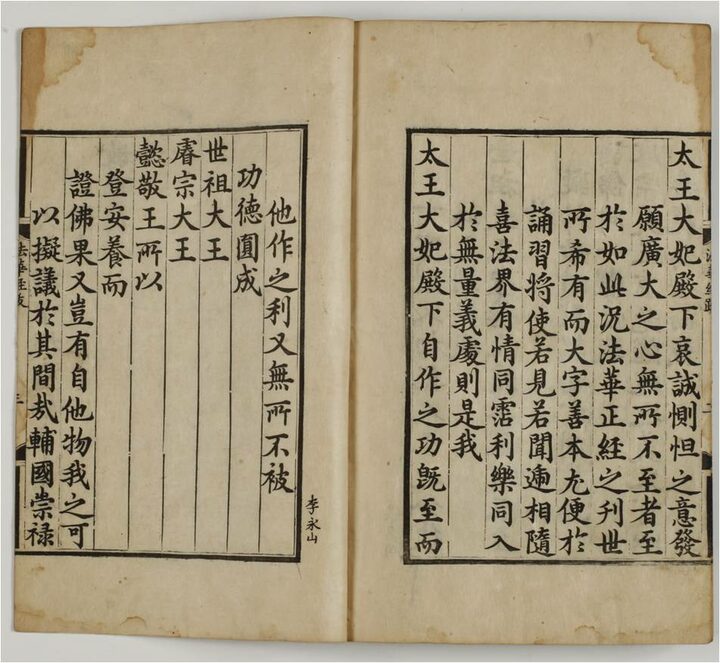 太王大妃殿下哀誠惻怛之意發
願廣大之心無所不至者至
於如此況法華正経之刊世
所希有而大字善本尤便於
誦習將使若見若聞遍相隨
喜法界有情同霑利樂同入
於無量義處則是我
太王大妃殿下自作之功旣至而
李永山
他作之利又無所不被
功德圓成
世祖大王
睿宗大王
懿敬王所以
登安養而
證佛果又豈有自他物我之可
以擬議於其間哉輔國崇祿
法華経跋 三